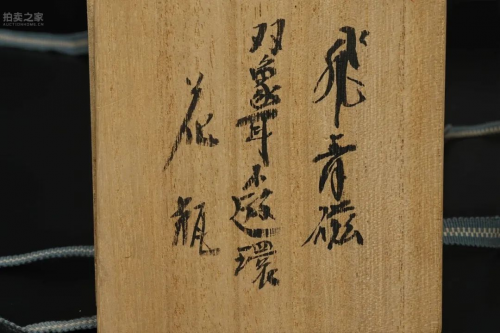 飛青磁
双象耳不遊環
花瓶
拍卖之家